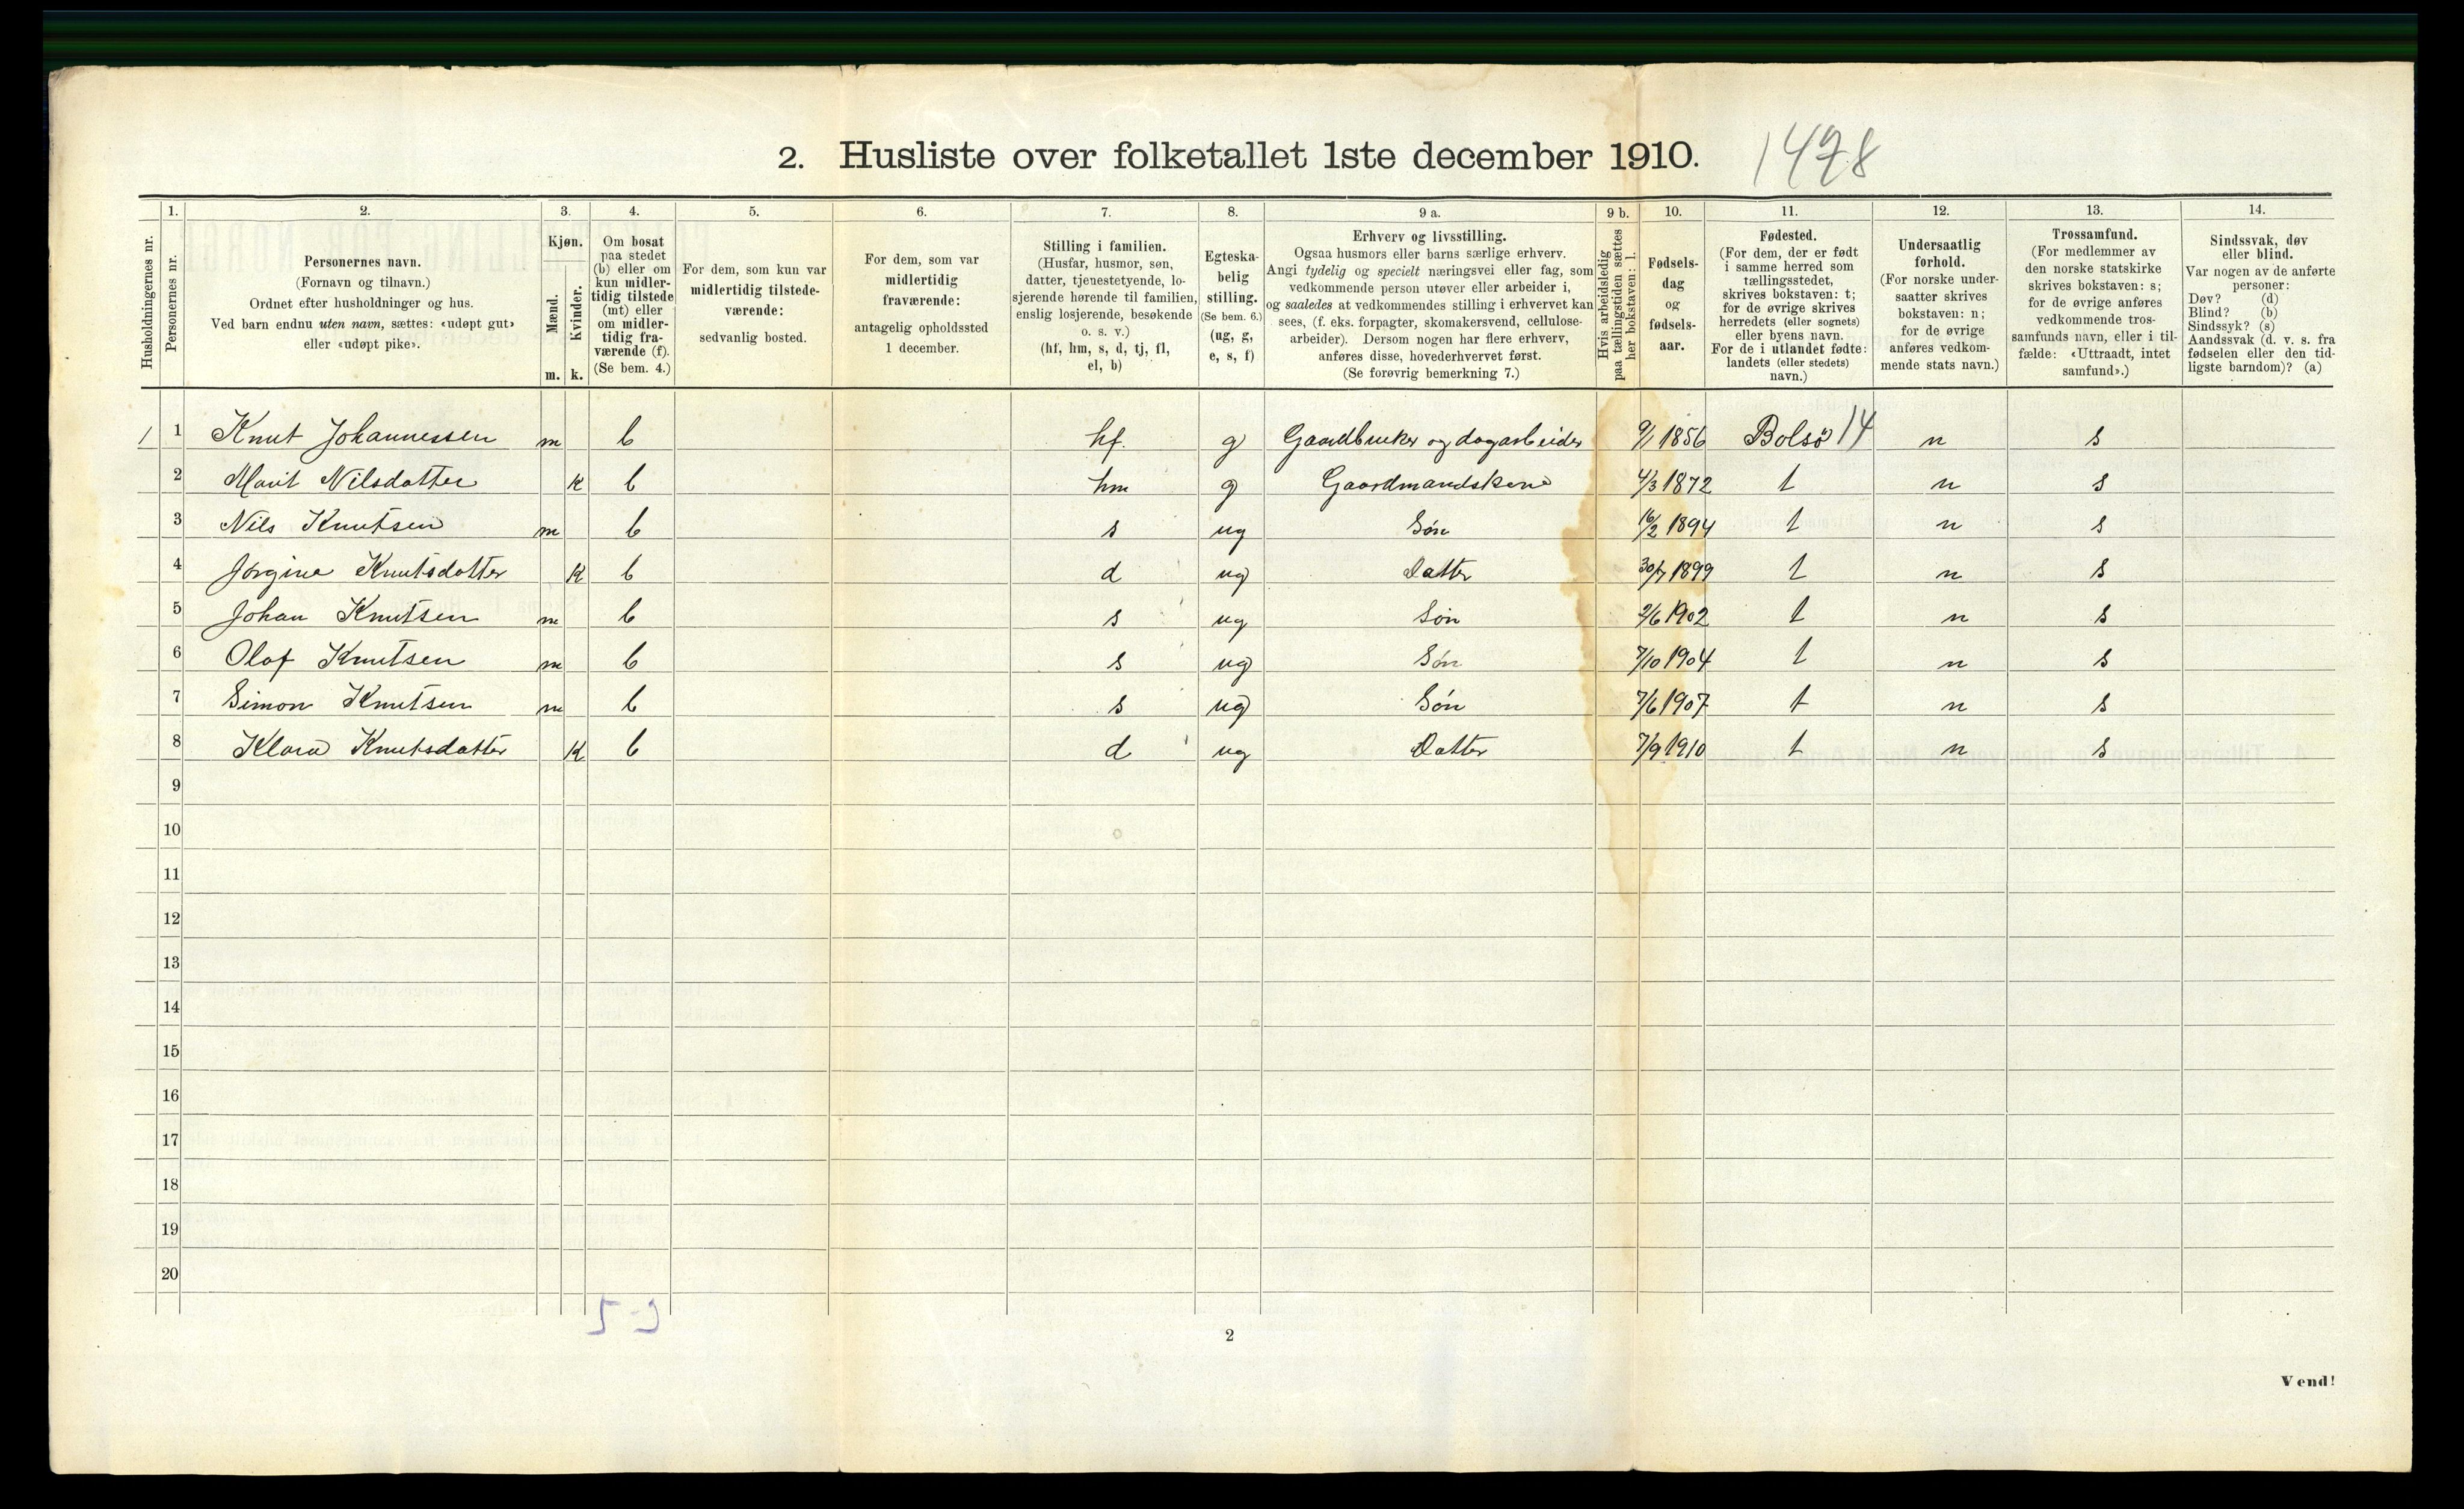 2. Husliste over folketallet 1ste december 1910. 1478
Husholdningernes nr.
1. Personernes nr.
2. Personernes navn.
(Fornavn og tilnavn.)
Ordnet efter husholdninger og hus.
Ved barn endnu uten navn, sættes: «udøpt gut»
eller «udøpt pike».
3. Kjøn.
Mænd. Kvinder.
m. k.
4. Om bosat
paa stedet
(b) eller om
kun midler-
tidig tilstede
(mt) eller
om midler-
tidig fra-
værende (f).
(Se bem. 4.)
5. For dem, som kun var
midlertidig tilstede-
værende:
sedvanlig bosted.
6. For dem, som var
midlertidig
fraværende:
antagelig opholdssted
1 december.
7. Stilling i familien.
(Husfar, husmor, søn,
datter, tjenestetyende, lo-
sjerende hørende til familien,
enslig losjerende, besøkende
o. s. v.)
(hf, hm, s, d, tj, fl,
el, b)
8. Egteska-
belig
stilling.
(Se bem. 6.)
(ug, g,
e, s, f)
9 a. Erhverv og livsstilling.
Ogsaa husmors eller barns særlige erhverv.
Angi tydelig og specielt næringsvei eller fag, som
vedkommende person utøver eller arbeider i,
og saaledes at vedkommendes stilling i erhvervet kan
sees, (f. eks. forpagter, skomakersvend, cellulose-
arbeider). Dersom nogen har flere erhverv,
anføres disse, hovederhvervet først.
(Se forøvrig bemerkning 7.)
9 b. Hvis arbeidsledig
paa tællingstiden sættes
her bokstaven: l.
10. Fødsels-
dag
og
fødsels-
aar.
11. Fødested.
(For dem, der er født
i samme herred som
tællingsstedet,
skrives bokstaven: t;
for de øvrige skrives
herredets (eller sognets)
eller byens navn.
For de i utlandet fødte:
landets (eller stedets)
navn.)
12. Undersaatlig
forhold.
(For norske under-
saatter skrives
bokstaven: n;
for de øvrige
anføres vedkom-
mende stats navn.)
13. Trossamfund.
(For medlemmer av
den norske statskirke
skrives bokstaven: s;
for de øvrige anføres
vedkommende tros-
samfunds navn, eller i til-
fælde: «Uttraadt, intet
samfund».)
14. Sindssvak, døv
eller blind.
Var nogen av de anførte
personer:
Døv? (d)
Blind? (b)
Sindssyk? (s)
Aandssvak (d. v. s. fra
fødselen eller den tid-
ligste barndom)? (a)
1 1 Knut Johannessen m b hf. g Gaardbruker og dagarbeider 9/1 1856 Bolsö 14 n s
2 Marit Nilsdatter k b hm g Gaardmandskone 4/3 1872 t n s
3 Nils Knutsen m b s ug Søn 16/2 1894 t n s
4 Jørgine Knutsdatter k b d ug Datter 30/7 1899 t n s
5 Johan Knutsen m b s ug Søn 2/6 1902 t n s
6 Olaf Knutsen m b s ug Søn 7/10 1904 t n s
7 Simon Knutsen m b s ug Søn 7/6 1907 t n s
8 Klara Knutsdatter k b d ug Datter 7/9 1910 t n s
9
10
11
12
13
14
15
16
17
18
19
20
2
Vend!